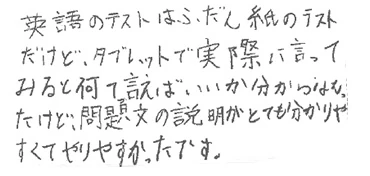 英語のテストはふだん紙のテスト
だけど、タブレットで実際に言って
みると何て言えばいいか分からなかっ
たけど、問題文の説明がとても分かりや
すくてやりやすかったです。